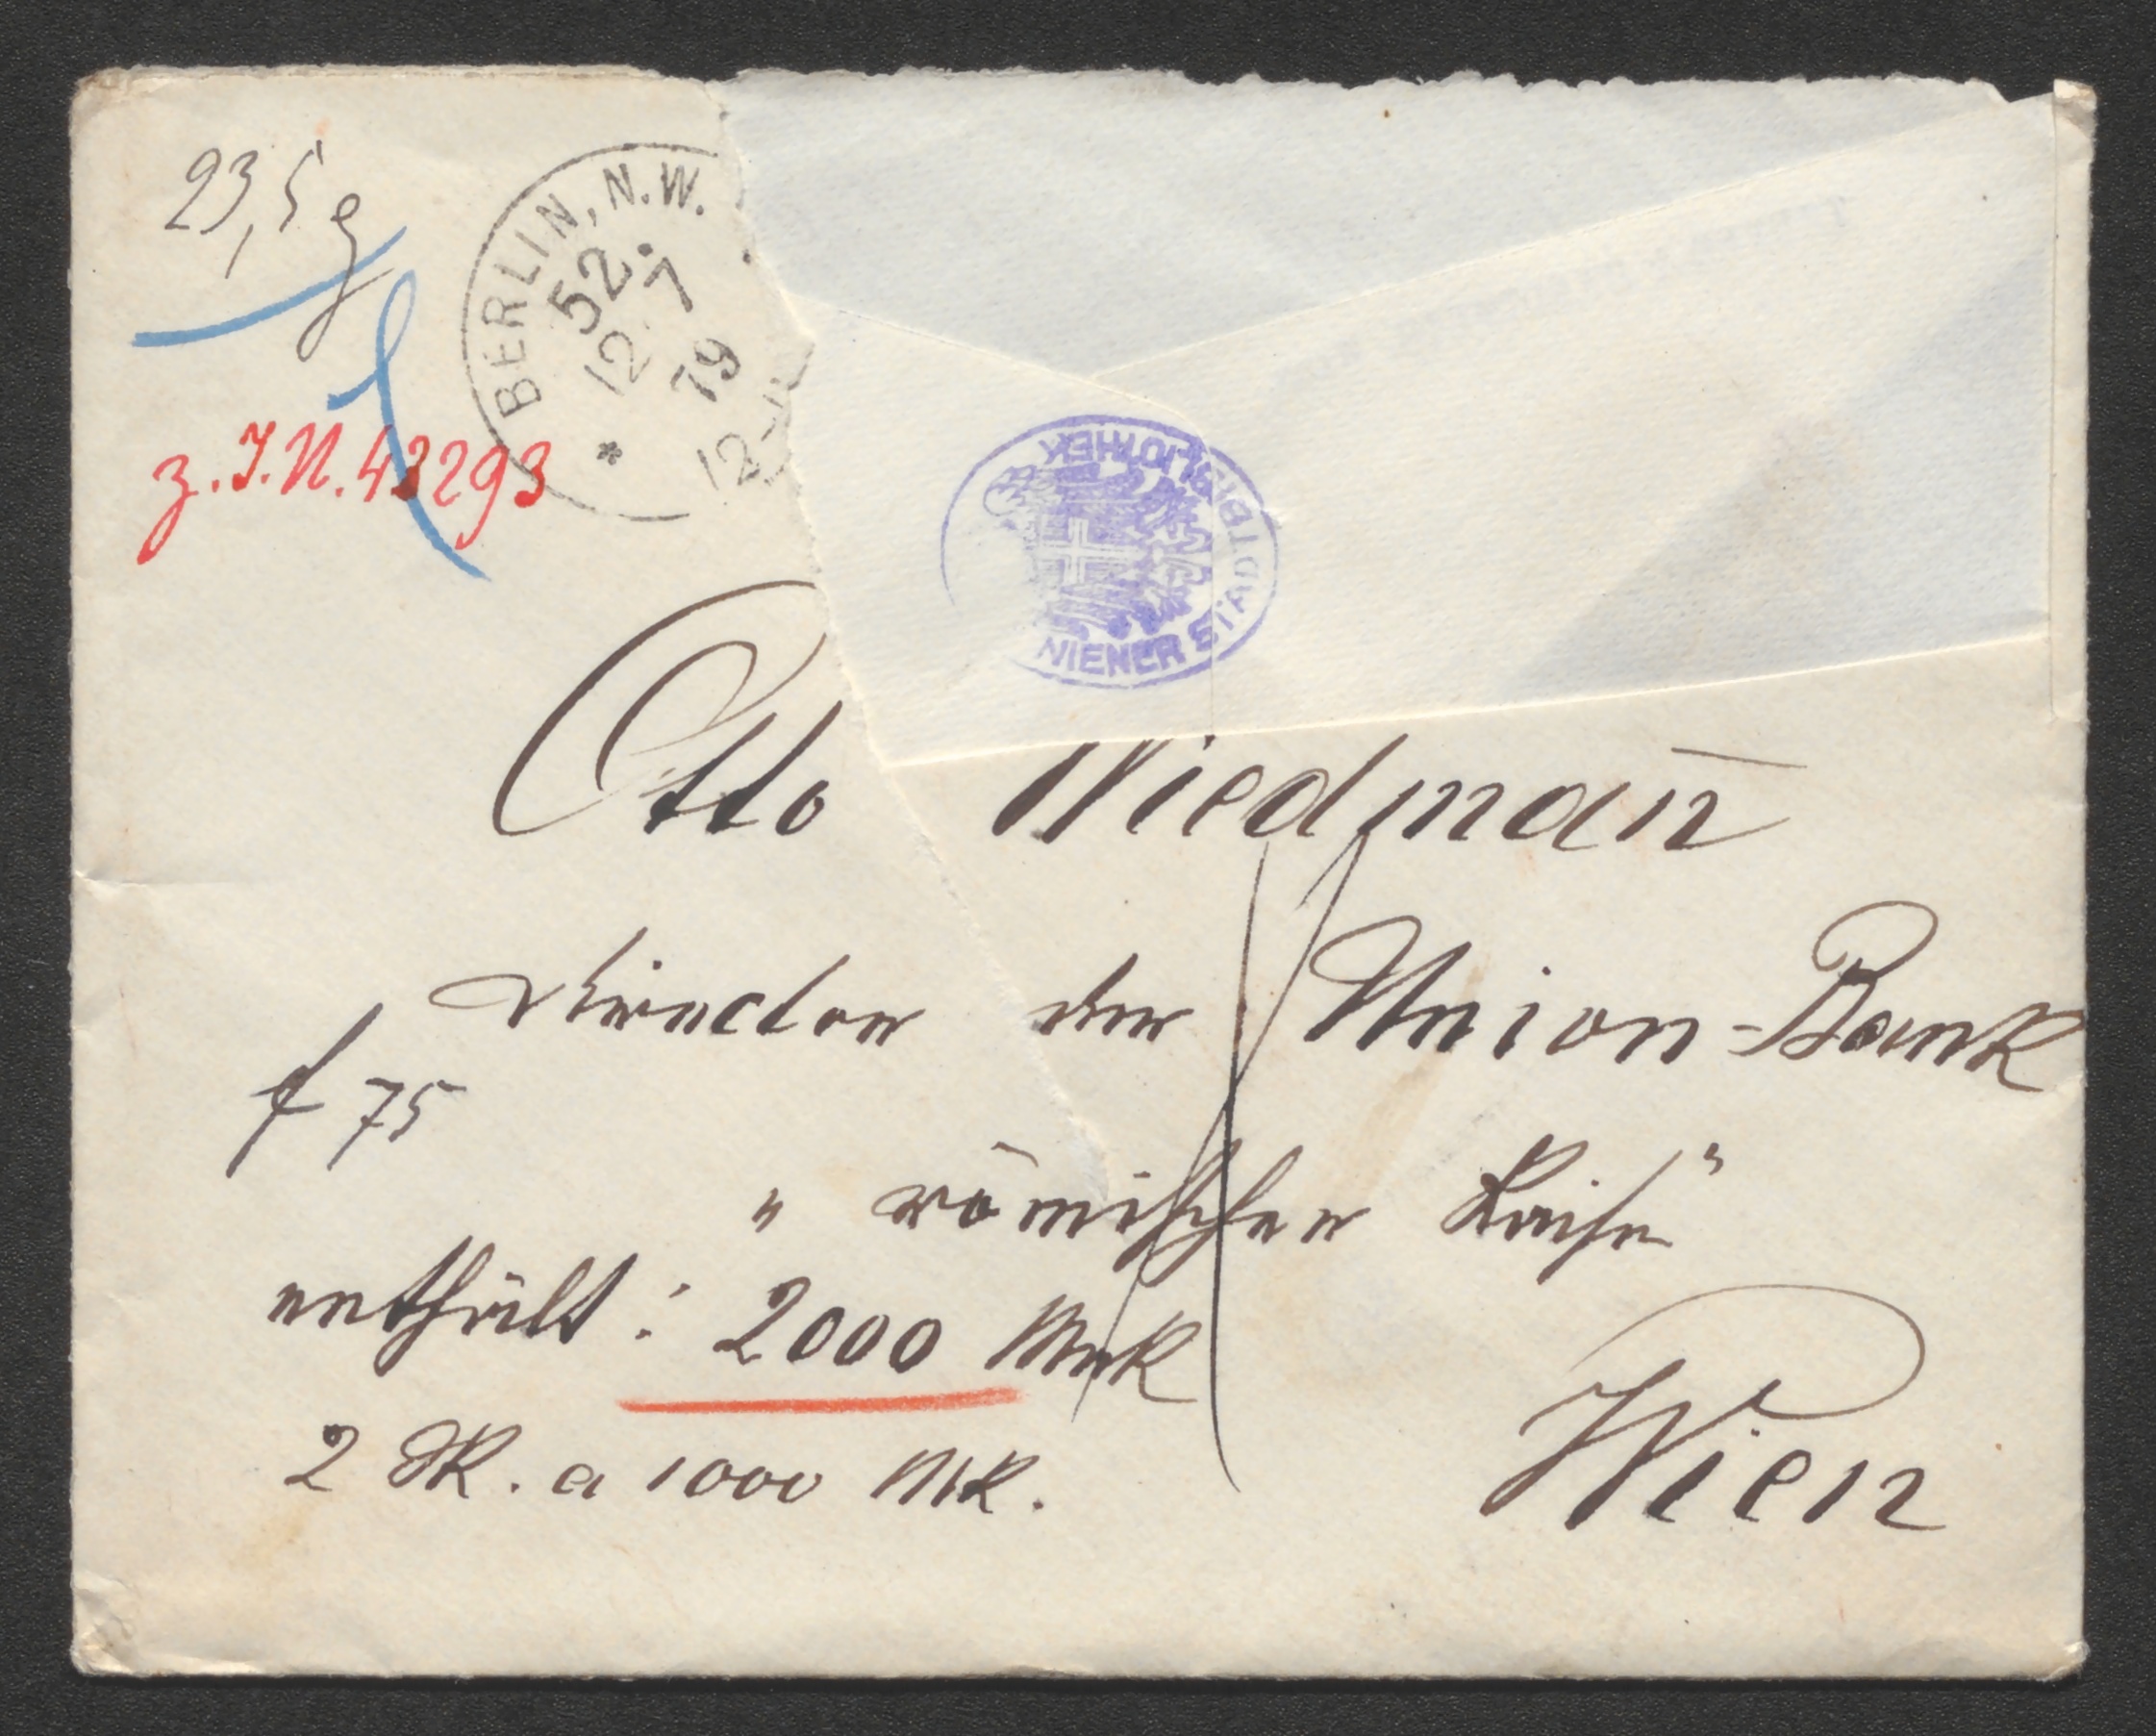 23,5 g
BERLIN, N.W.
52.
12 7
79
12-
z.I.N. 43293
WIENER STADTBIBLIOTHEK
Otto Wiedmañ
Director der Union-Bank
f 75
" römischer Kaiser "
enthält: 2000 Mrk
2 St. a 1000 Mk.
Wien